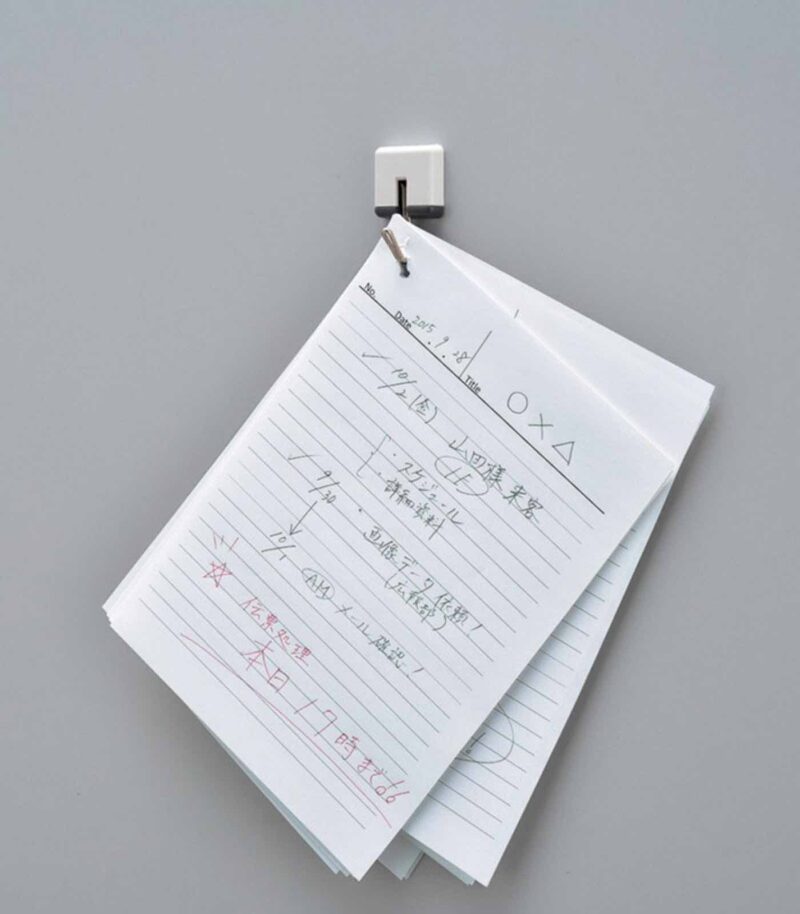 No.
Date 2015. 9. 28 Title ○×△
✓ 10/2(金) 山田様 来客
・スケジュール
・詳細資料
✓ 9/30 ・画像データ依頼!
(広報部)
↓
10/1 AM メール確認!
☆ 伝票処理
本日17時まで